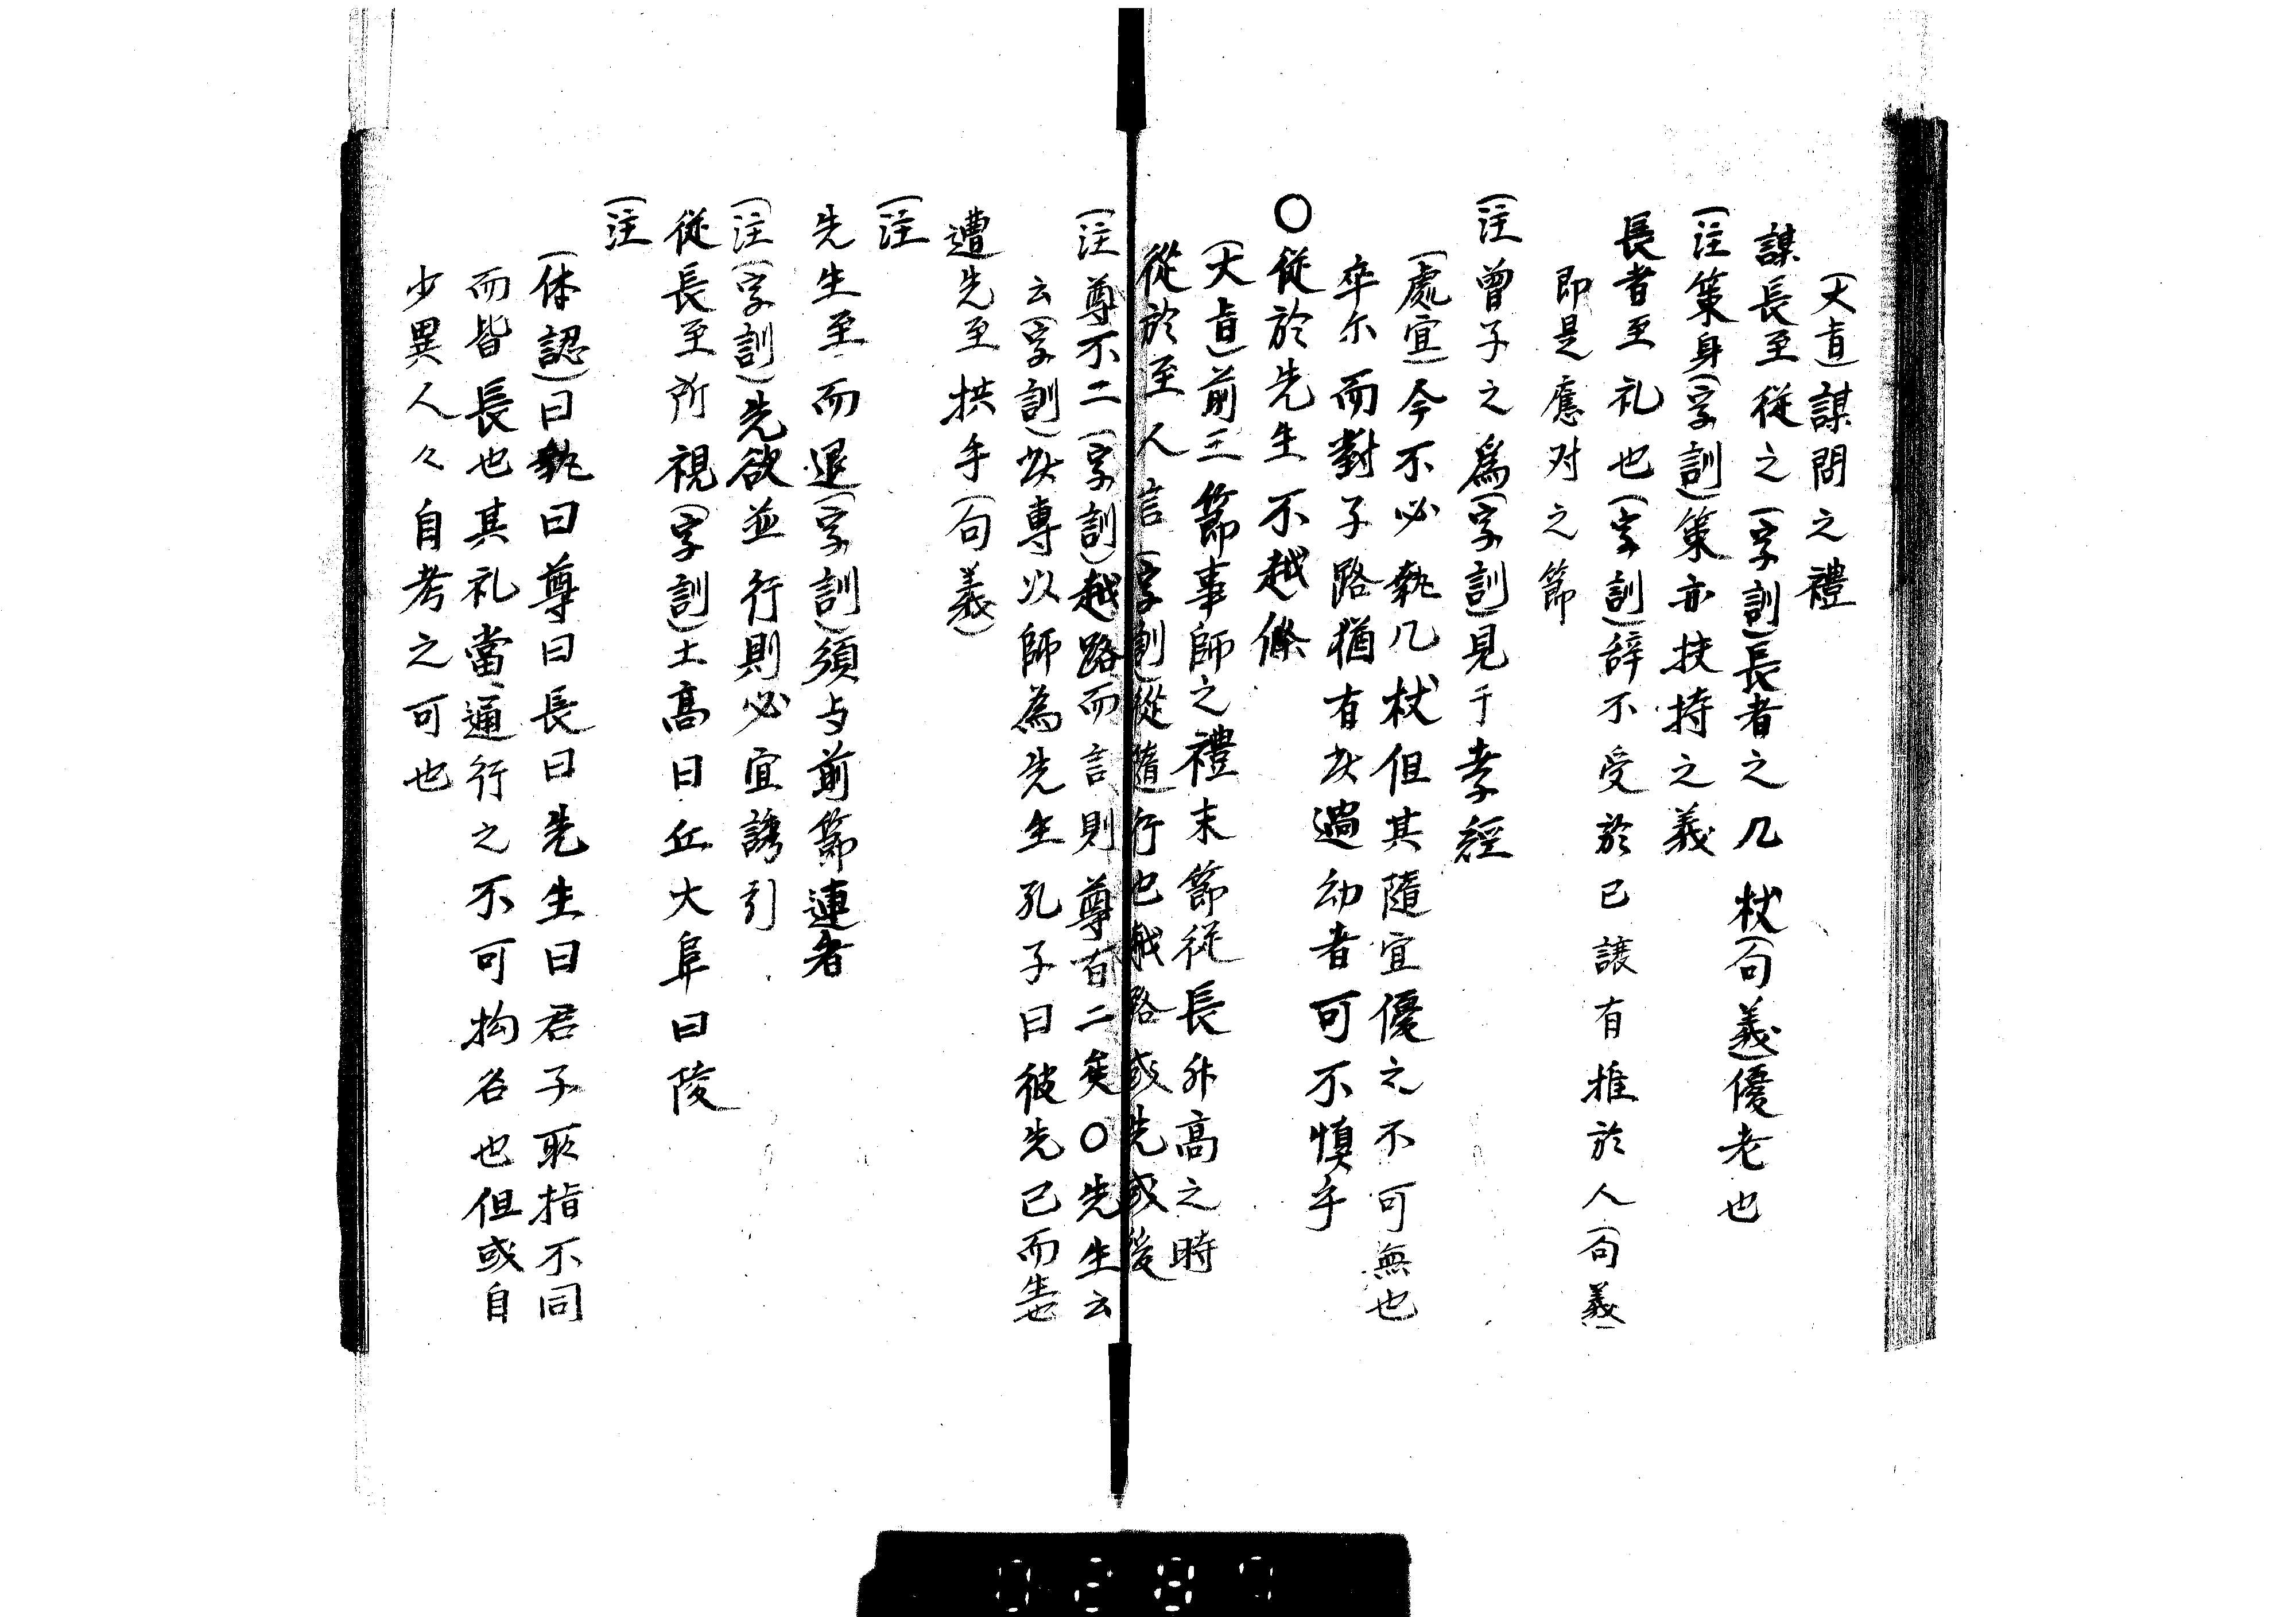 (大旨)謀問之禮
謀長至從之(字訓)長者之几杖(句義)優老也
(注)策身(字訓)策亦扶持之義
長者至礼也(字訓)辞不受於己譲有推於人(句義)
即是應対之節
(注)曽子之爲(字訓)見于孝經
(處宜)今不必執几杖但其隨宜優之不可無也
卒尓而對子路猶有此過幼者可不慎乎
〇從於先生不越條
(大旨)前三節事師之禮末節從長升高之時
從於至人言(字訓)從隨行也越路或先或後
(注)尊不二(字訓)越路而言則尊有二矣〇先生云
云(字訓)此専以師為先生孔子曰彼先已而生也
遭先至拱手(句義)
(注)
先生至而退(字訓)須与前節連者
(注)(字訓)先欲並行則必宜誘引
從長至所視(字訓)土高曰丘大阜曰陵
(注)
(体認)曰執曰尊曰長曰先生曰君子取指不同
而皆長也其礼當通行之不可拘名也但或自
少異人々自考之可也